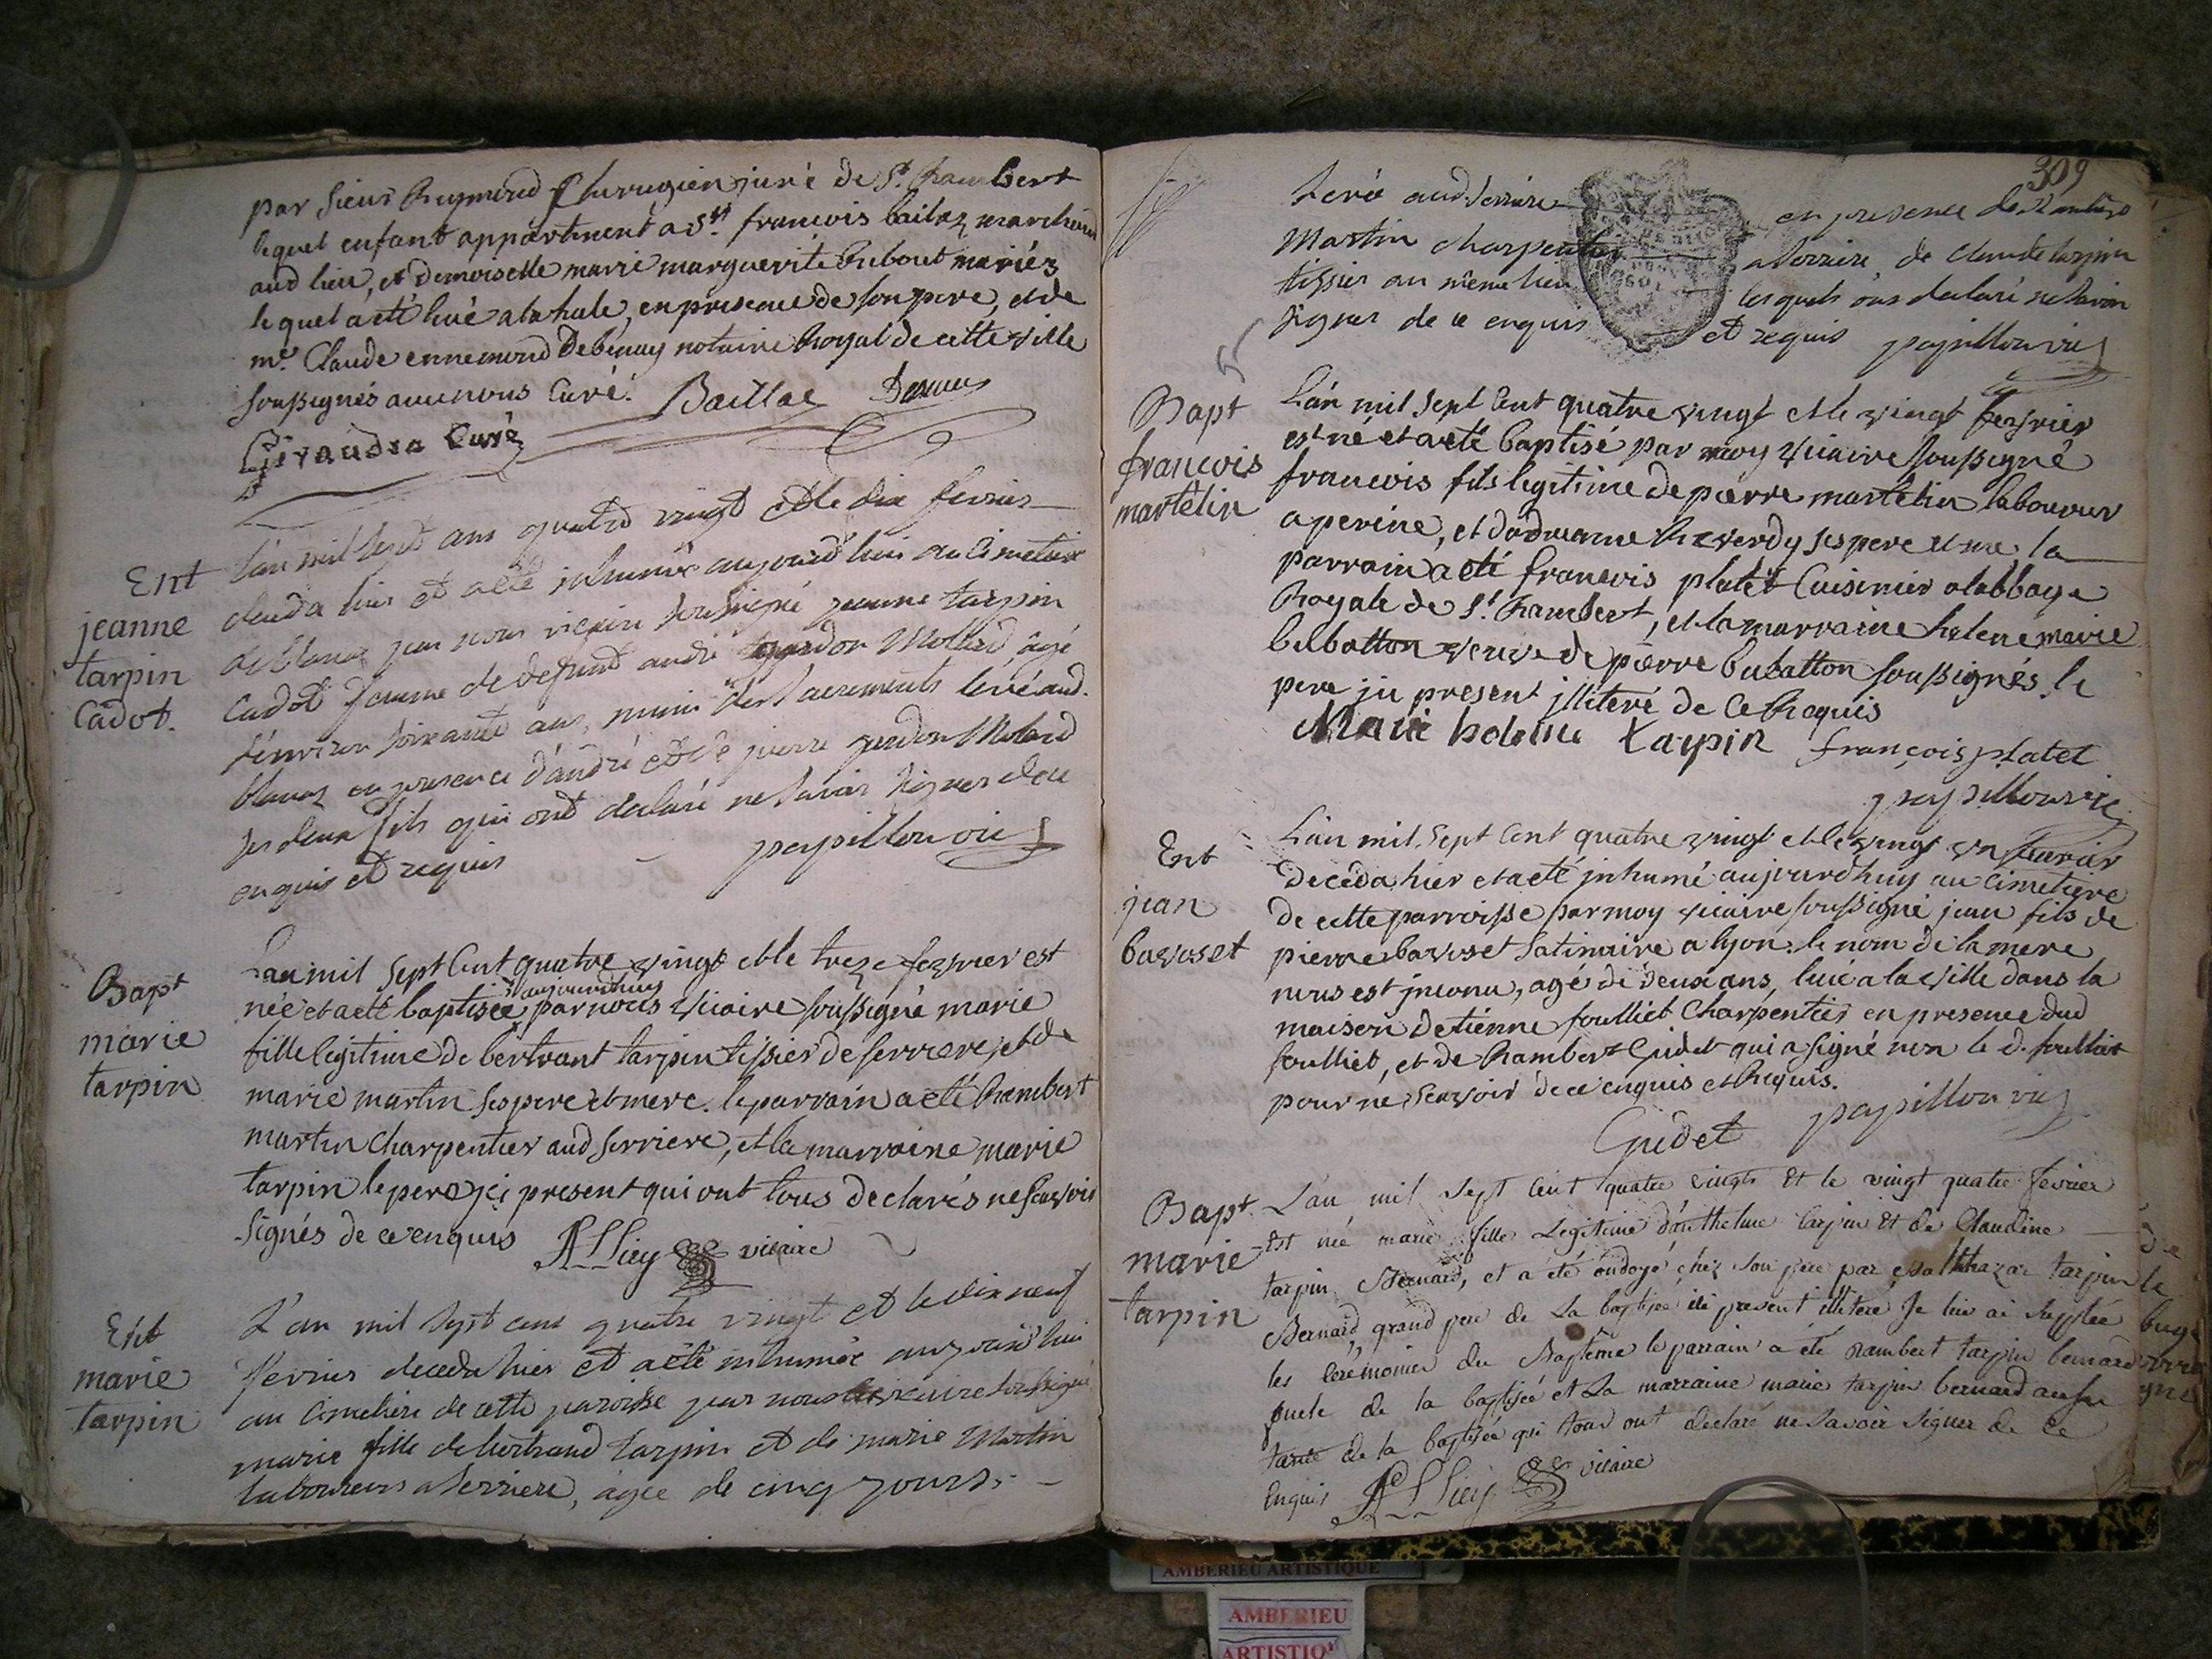 par sieur Raymond Chirurgien juré de St. Rambert
lequel enfant appartenent a Sr. francois bailaz marchand
aud lieu, et demoiselle marie marguerite mariés
lequel a eté livé a la hale, en presence de son pere, et de
me. Claude ennemond Debenay notaire Royal de cette ville
soussignés avec nous Curé. Baillat
Giraudra Curé
Ent
jeanne
tarpin
Cadot.
L'an mil sept cens quatre vingt et le dix fevrier
deceda hier et a eté inhumée aujourd'hui au cimetiere
de blanaz par nous vicaire soussigné jeanne tarpin
Cadot femme de defunt andré gordon Mollard, agé
d'environ soixante ans, munie des sacrements levé aud.
blanaz en presence d'andré et de pierre gordon Molard
ses deux fils qui ont declaré ne savoir signer de ce
enquis et requis papillon vic
Bapt
marie
tarpin
L'an mil sept Cent quatre vingt et le treze fevrier est
née et a eté baptisée aujourdhuy par nous Vicaire soussigné marie
fille legitime de bertrant tarpin tissier de serriere, et de
marie martin ses pere et mere. le parrain a eté Rambert
martin Charpentier aud serriere, et la marraine marie
tarpin le pere jci present qui ont tous declarés ne scavoir
signés de ce enquis vicaire
Ent
marie
tarpin
L'an mil sept cens quatre vingt et le dix neuf
fevrier deceda hier et a eté inhumée aujourd'hui
au cimetiere de cette paroisse par nous vicaire soussigné
marie fille de bertrand tarpin et de marie Martin
laboureurs a serriere, agée de cinq jours. -
309
Levée aud serriere en presence de Rambert
Martin charpentier a serriere, de claude tarpin
tissier au même lieu lesquels ons declaré ne savoir
signer de ce enquis et requis papillon vic
Bapt
francois
martelin
L'an mil sept Cent quatre vingt et le vingt fevrier
est né et a eté baptisé par moy Vicaire soussigné
francois fils legitime de pierre martelin laboureur
a perine, et Reverdy ses pere et mere, le
parrain a eté francois platet Cuisinier a labbaye
Royale de St. Rambert, et la marraine helene marie
veuve de pierre soussignés, le
pere jci present jlliteré de ce Requis
Marie helene tarpin françois platet
papillon vic
Ent
jean
bavoset
L'an mil sept Cent quatre vingt et le vingt un fevrier
deceda hier et a eté jnhumé aujourdhuy au cimetiere
de cette parroisse par moy vicaire soussigné jean fils de
pierre bavoset Satinaire a lyon. le nom de la mere
nous est jnconu, agé de deux ans, livé a la ville dans la
maison detienne foulliet Charpentier en presence dud
foulliet, et de Rambert Guidet qui a signé non le d. foulliet
pour ne scavoir de ce enquis et Requis.
Guidet papillon vic
Bapt
marie
tarpin
L'an mil sept Cent quatre vingts Et le vingt quatre fevrier
est née marie fille Legitime d'anthelme tarpin Et de Claudine
tarpin Bernard, et a été ondoyé chez son père par Balthazar tarpin
Bernard, grand pere de La baptisée ici present illiteré Je lui ai suplée
les Ceremonies du Baptême le parrain a été Rambert tarpin bernard
oncle de la baptisée et La marraine marie tarpin bernard aussi
tante de la baptisée qui tous ont declaré ne savoir signer de ce
Enquis vicaire
AMBERIEU ARTISTIQUE
AMBERIEU
ARTISTIQU